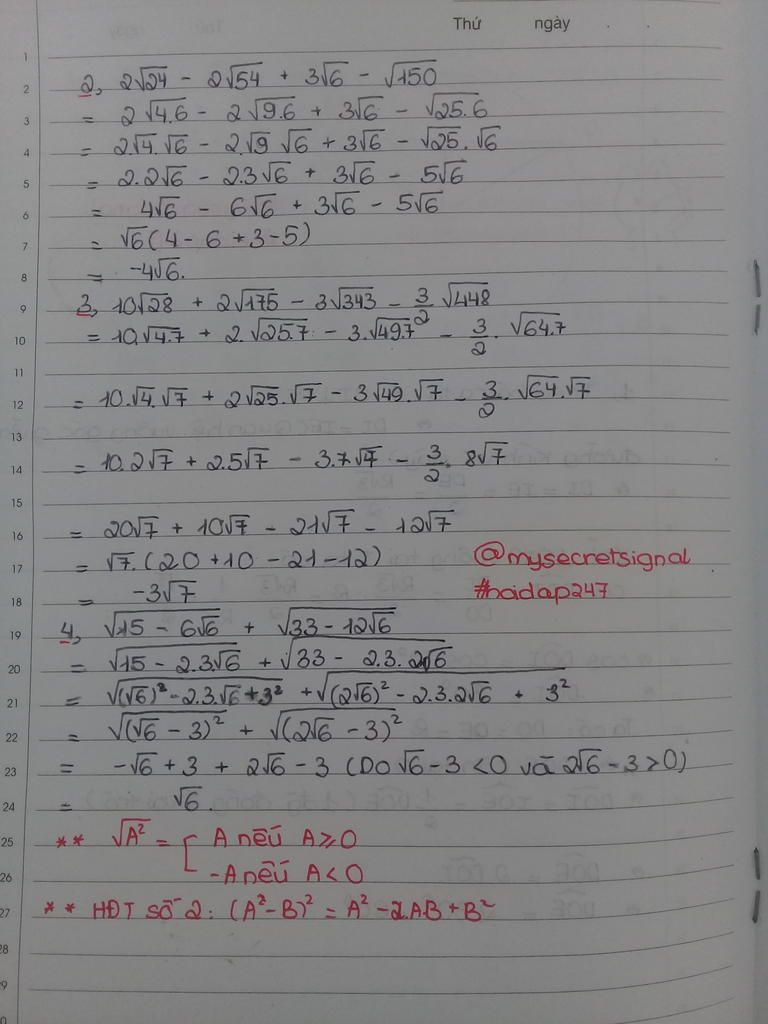 Thứ ngày . .
1
2 2, 2√24 - 2√54 + 3√6 - √150
3 = 2√4.6 - 2√9.6 + 3√6 - √25.6
4 = 2.√4.√6 - 2.√9 √6 + 3√6 - √25.√6
5 = 2.2√6 - 2.3√6 + 3√6 - 5√6
6 = 4√6 - 6√6 + 3√6 - 5√6
7 = √6(4 - 6 + 3 - 5)
8 = -4√6.
9 3, 10√28 + 2√175 - 3√343 - 3/2 √448
10 = 10.√4.7 + 2.√25.7 - 3.√49.7 - 3/2 . √64.7
11
12 = 10.√4.√7 + 2√25.√7 - 3√49.√7 - 3/2 . √64.√7
13
14 = 10.2√7 + 2.5√7 - 3.7√7 - 3/2 . 8√7
15
16 = 20√7 + 10√7 - 21√7 - 12√7
17 = √7.(20 + 10 - 21 - 12) @mysecretsignal
18 = -3√7 #hoidap247
19 4, √(15 - 6√6) + √(33 - 12√6)
20 = √(15 - 2.3√6) + √(33 - 2.3.2√6)
21 = √((√6)² - 2.3.√6 + 3²) + √((2√6)² - 2.3.2√6 + 3²)
22 = √(√6 - 3)² + √(2√6 - 3)²
23 = -√6 + 3 + 2√6 - 3 (Do √6 - 3 < 0 và 2√6 - 3 > 0)
24 = √6.
25 ** √A² = [ A nếu A ⩾ 0
26 -A nếu A < 0
27 ** HĐT số 2: (A² - B)² = A² - 2.AB + B²
28
9
0